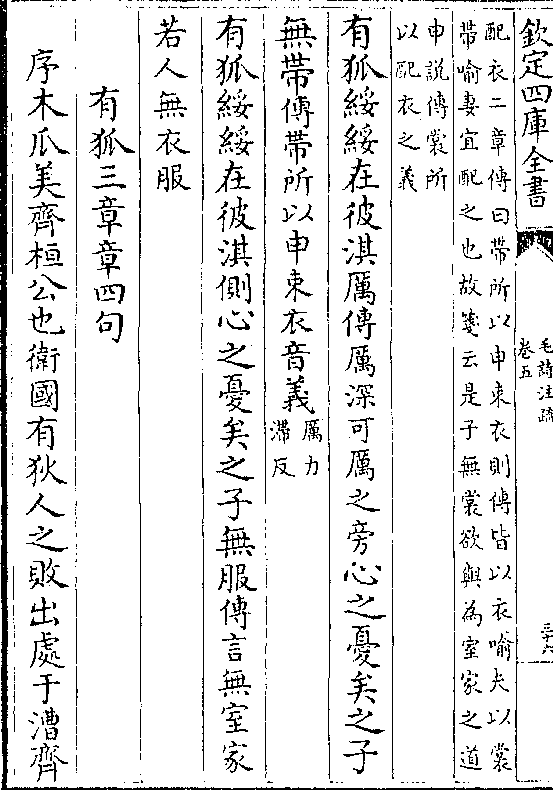 欽定四庫全書
毛詩注疏
卷五
三十六
配衣二章傳曰帶所以申束衣則傳皆以衣喻夫以裳
帶喻妻宜配之也故箋云是子無裳欲與為室家之道
申說傳裳所
以配衣之義
有狐綏綏在彼淇厲傳厲深可厲之旁心之憂矣之子
無帶傳帶所以申束衣音義厲力
滯反
有狐綏綏在彼淇側心之憂矣之子無服傳言無室家
若人無衣服
有狐三章章四句
序木瓜美齊桓公也衛國有狄人之敗出處于漕齊